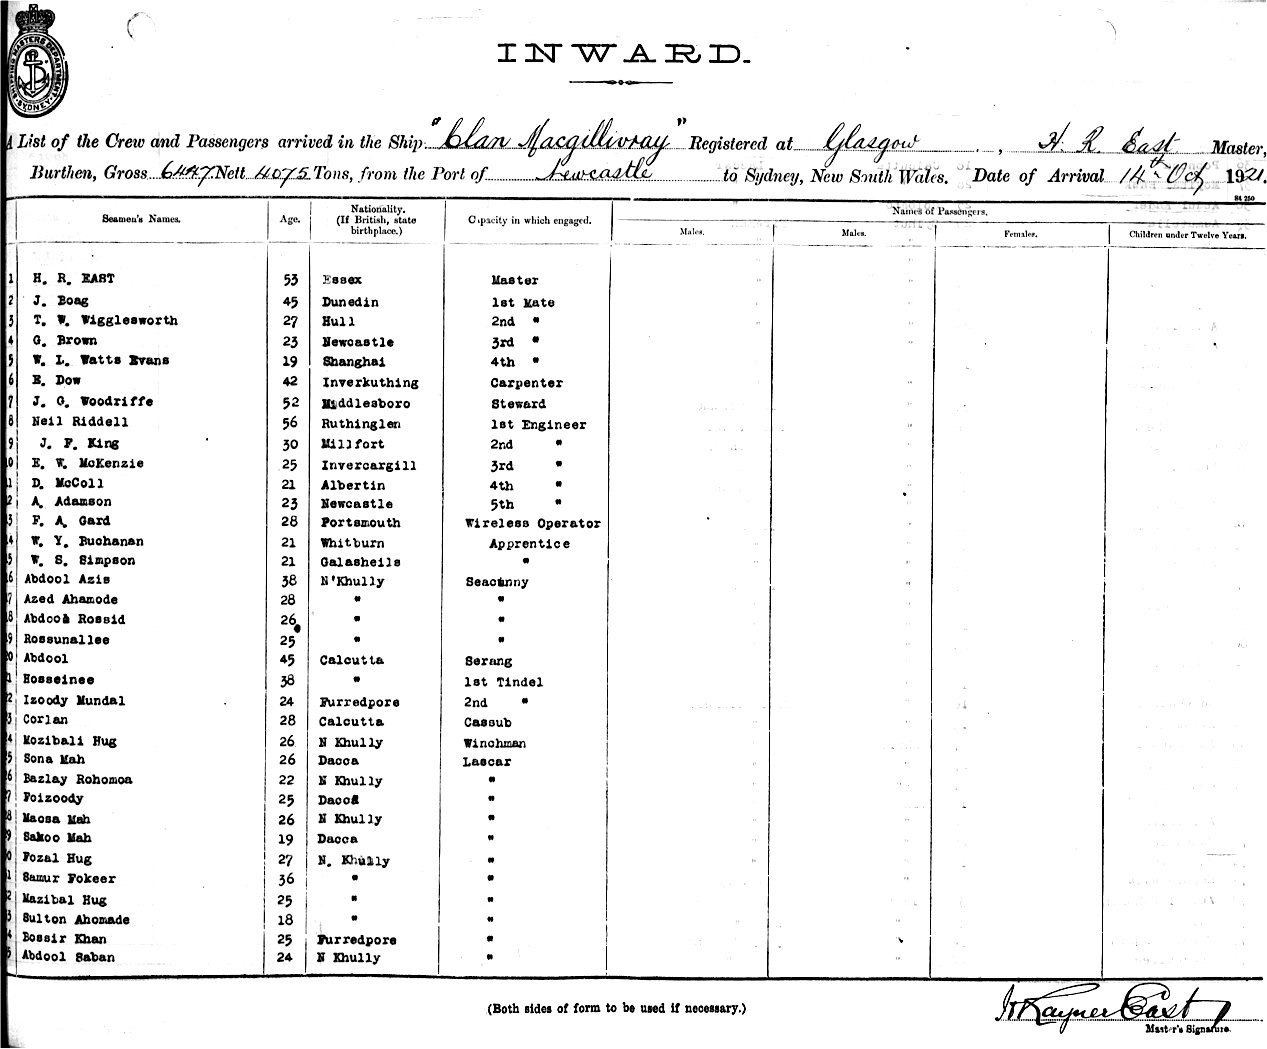 SHIPPING MASTERS DEPARTMENT
SYDNEY
INWARD.
A List of the Crew and Passengers arrived in the Ship "Clan Macgillivray" Registered at Glasgow, H. R. East Master,
Burthen, Gross 6447 Nett 4075 Tons, from the Port of Newcastle to Sydney, New South Wales. Date of Arrival 14th Oct 1921.
84 250
Seamen's Names. Age. Nationality. (If British, state birthplace.) Capacity in which engaged. Names of Passengers.
Males. Males. Females. Children under Twelve Years.
1 H. R. EAST 53 Essex Master
2 J. Boag 45 Dunedin 1st Mate
3 T. W. Wigglesworth 27 Hull 2nd "
4 G. Brown 23 Newcastle 3rd "
5 W. L. Watts Evans 19 Shanghai 4th "
6 E. Dow 42 Inverkuthing Carpenter
7 J. G. Woodriffe 52 Middlesboro Steward
8 Neil Riddell 56 Ruthinglen 1st Engineer
9 J. F. King 30 Millfort 2nd "
0 E. W. McKenzie 25 Invercargill 3rd "
1 D. McColl 21 Albertin 4th "
2 A. Adamson 23 Newcastle 5th "
3 F. A. Gard 28 Portsmouth Wireless Operator
4 W. Y. Buchanan 21 Whitburn Apprentice
5 W. S. Simpson 21 Galasheils "
6 Abdool Azis 38 N'Khully Seacunny
7 Azed Ahamode 28 " "
8 Abdool Rossid 26 " "
9 Rossunallee 25 " "
0 Abdool 45 Calcutta Serang
1 Hosseinee 38 " 1st Tindel
2 Izoody Mundal 24 Furredpore 2nd "
3 Corlan 28 Calcutta Cassub
4 Mozibali Hug 26 N Khully Winchman
5 Sona Mah 26 Dacca Lascar
6 Bazlay Rohomoa 22 N Khully "
7 Foizoody 25 Dacca "
8 Maosa Mah 26 N Khully "
9 Sakoo Mah 19 Dacca "
0 Fozal Hug 27 N. Khully "
1 Samur Fokeer 36 " "
2 Mazibal Hug 25 " "
3 Sulton Ahomade 18 " "
4 Bossir Khan 25 Furredpore "
5 Abdool Saban 24 N Khully "
(Both sides of form to be used if necessary.)
H Rayner East
Master's Signature.